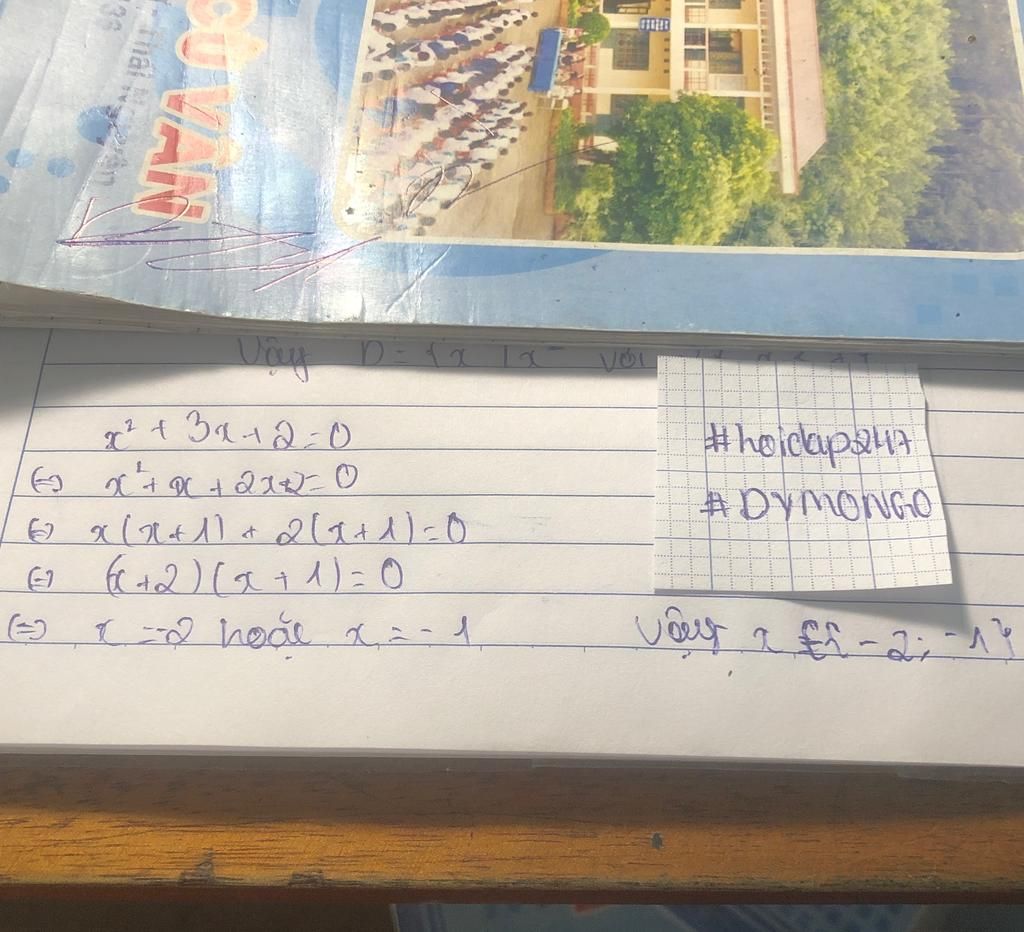 CỪ VÂN
Vậy D = {x | x
với
x² + 3x + 2 = 0
⇔ x² + x + 2x + 2 = 0
⇔ x(x+1) + 2(x+1) = 0
⇔ (x+2)(x+1) = 0
⇔ x = -2 hoặc x = -1
Vậy x ∈ {-2; -1}
#hoidap247
#DYMONGO